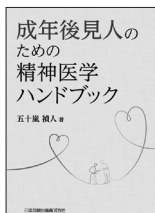 成年後見人の
ための
精神医学
ハンドブック
五十嵐 禎人 著
日本加除出版株式会社